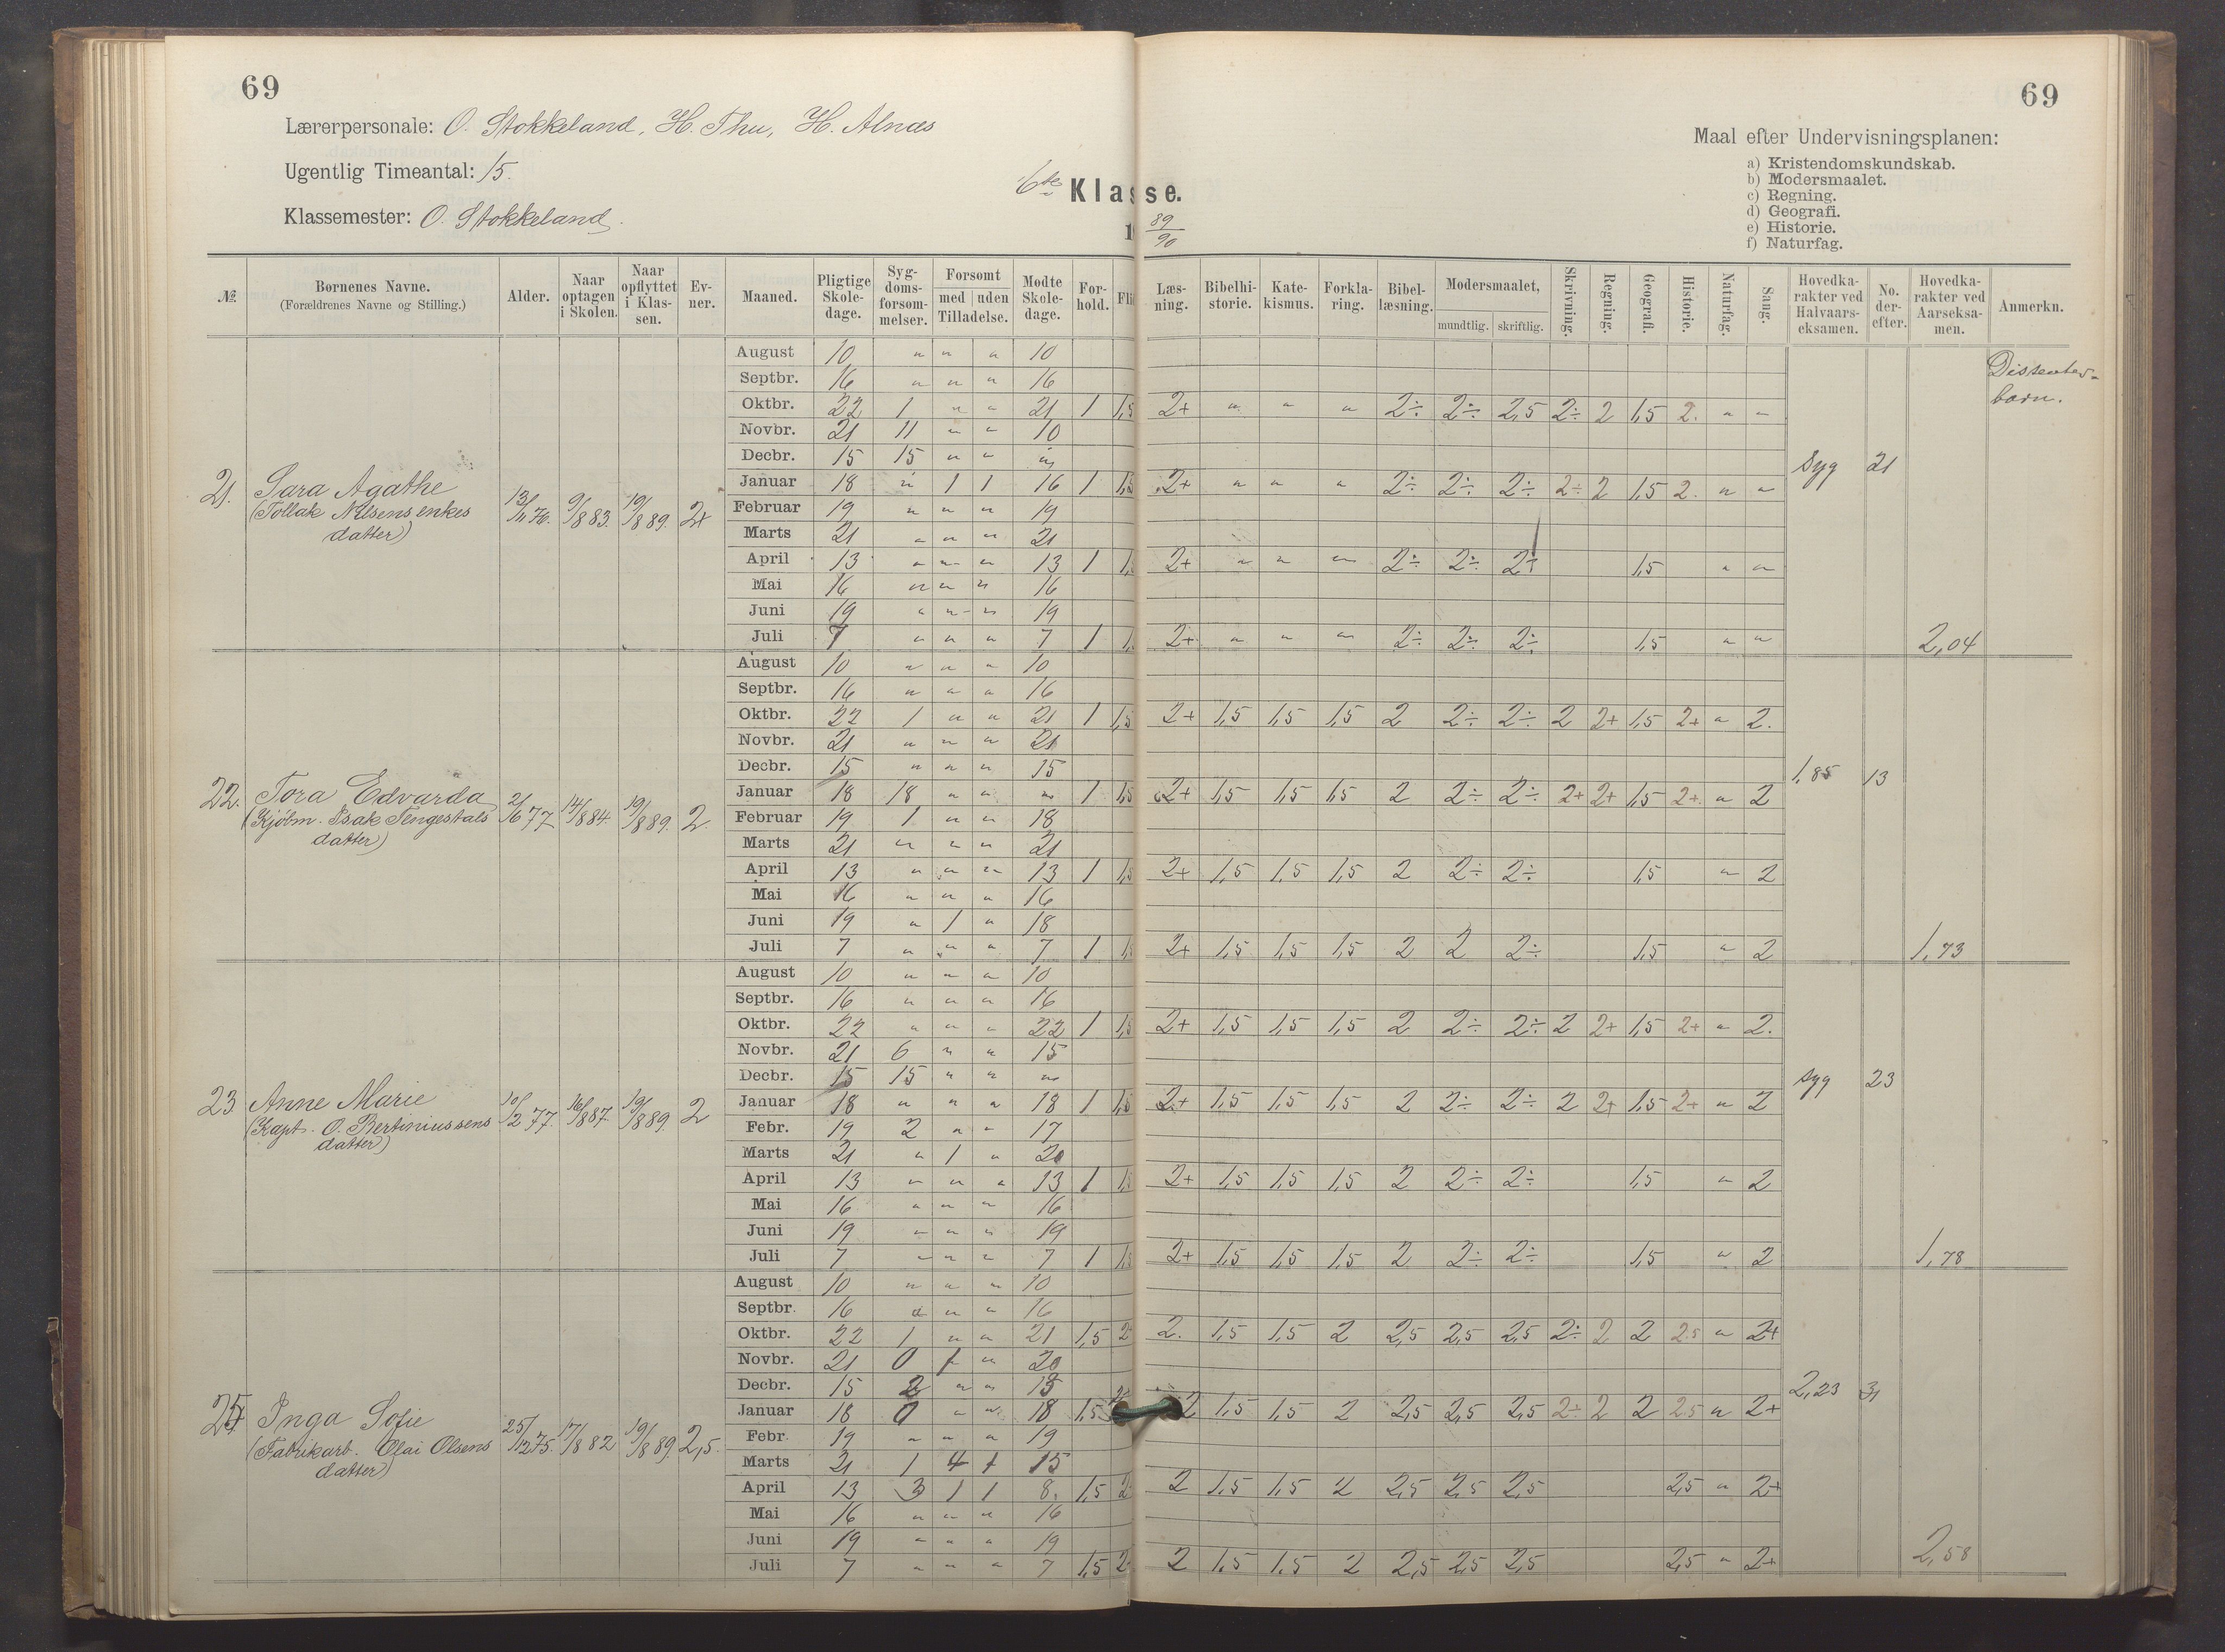 69
69
Lærerpersonale: O. Stokkeland, H. Thu, H. Alnæs
Ugentlig Timeantal: 15.
Klassemester: O. Stokkeland.
6te Klasse.
1 89/90
Maal efter Undervisningsplanen:
a) Kristendomskundskab.
b) Modersmaalet.
c) Regning.
d) Geografi.
e) Historie.
f) Naturfag.
№ Børnenes Navne. (Forældrenes Navne og Stilling.) Alder. Naar optagen i Skolen. Naar opflyttet i Klassen. Evner. Maaned. Pligtige Skoledage. Sygdomsforsommelser. Forsømt med uden Tilladelse. Mødte Skoledage. Forhold. Fli Læsning. Bibelhistorie. Katekismus. Forklaring. Bibellæsning. Modersmaalet, mundtlig. skriftlig. Skrivning. Regning. Geografi. Historie. Naturfag. Sang. Hovedkarakter ved Halvaarseksamen. No. derefter. Hovedkarakter ved Aarseksamen. Anmerkn.
21. Sara Agathe
(Tollak Nilsens enkes
datter)
13/11 76. 9/8 83. 19/8 89. 2+
August 10 " " " 10
Septbr. 16 " " " 16
Oktbr. 22 1 " " 21 1 1,5 2+ " " " 2÷ 2÷ 2,5 2÷ 2 1,5 2. " "
Novbr. 21 11 " " 10
Decbr. 15 15 " " "
Januar 18 " 1 1 16 1 1,5 2+ " " " 2÷ 2÷ 2÷ 2÷ 2 1,5 2. " "
Februar 19 " " " 19
Marts 21 " " " 21
April 13 " " " 13 1 1, 2+ " " " 2÷ 2÷ 2÷ 1,5 " "
Mai 16 " " " 16
Juni 19 " " " 19
Juli 7 " " " 7 1 1, 2+ " " " 2÷ 2÷ 2÷ 1,5 " "
Syg 21
2,04
Dissenter-
barn.
22. Tora Edvarda
(Kjøbm. Isak Tengesdals
datter)
2/6 77 14/8 84. 19/8 89. 2.
August 10 " " " 10
Septbr. 16 " " " 16
Oktbr. 22 1 " " 21 1 1,5 2+ 1,5 1,5 1,5 2 2÷ 2÷ 2 2+ 1,5 2+ " 2.
Novbr. 21 " " " 21
Decbr. 15 " " " 15
Januar 18 18 " " " 1 1,5 2+ 1,5 1,5 1,5 2 2÷ 2÷ 2+ 2+ 1,5 2+ " 2
Februar 19 1 " " 18
Marts 21 " " " 21
April 13 " " " 13 1 1,5 2+ 1,5 1,5 1,5 2 2÷ 2÷ 1,5 " 2
Mai 16 " " " 16
Juni 19 " 1 " 18
Juli 7 " " " 7 1 1,5 2+ 1,5 1,5 1,5 2 2 2÷ 1,5 " 2
1,85 13
1,73
23 Anne Marie
(Kapt. O. Bertiniussens
datter)
10/2 77. 16/8 87. 19/8 89. 2
August 10 " " " 10
Septbr. 16 " " " 16
Oktbr. 22 " " " 22 1 1,5 2+ 1,5 1,5 1,5 2 2÷ 2÷ 2 2+ 1,5 2+ " 2.
Novbr. 21 6 " " 15
Decbr. 15 15 " " "
Januar 18 " " " 18 1 1,5 2+ 1,5 1,5 1,5 2 2÷ 2÷ 2 2+ 1,5 2+ " 2
Febr. 19 2 " " 17
Marts 21 " 1 " 20
April 13 " " " 13 1 1,5 2+ 1,5 1,5 1,5 2 2÷ 2÷ 1,5 " 2
Mai 16 " " " 16
Juni 19 " " " 19
Juli 7 " " " 7 1 1,5 2+ 1,5 1,5 1,5 2 2÷ 2÷ 1,5 " 2
syg 23
1,78
25 Inga Sofie
(Fabrikarb. Olai Olsens
datter)
25/12 75. 17/8 82 19/8 89. 2,5.
August 10 " " " 10
Septbr. 16 " " " 16
Oktbr. 22 1 " " 21 1,5 2 2. 1,5 1,5 2 2,5 2,5 2,5 2÷ 2 2 2,5 " 2+
Novbr. 21 0 1 " 20
Decbr. 15 2 " " 13
Januar 18 0 " " 18 1,5 2 1,5 1,5 2 2,5 2,5 2,5 2÷ 2 2 2,5 " 2+
Febr. 19 " " " 19
Marts 21 1 4 1 15
April 13 3 1 1 8. 1,5 2 2 1,5 1,5 2 2,5 2,5 2,5 2,5 " 2+
Mai 16 " " " 16
Juni 19 " " " 19
Juli 7 " " " 7 1,5 2 2 1,5 1,5 2 2,5 2,5 2,5 2,5 " 2+
2,23 31
2,58